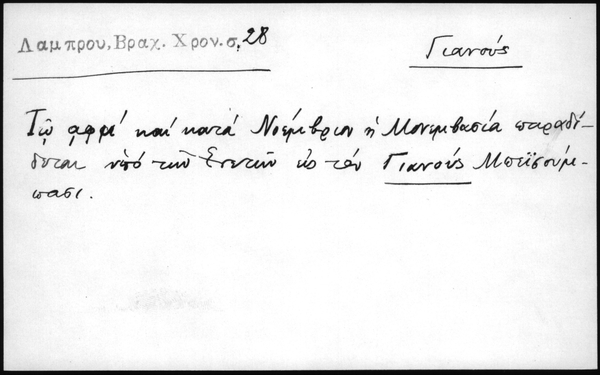 Λαμπρου, Βραχ. Χρον. σ. 28
Γιανούς
Τῷ αφμ' καί κατά Νοέμβριον ἡ Μονεμβασία παραδί-
δεται ὑπό τῶν Ενετῶν εἰς τόν Γιανούς Μπεϊσούμ-
πασι.